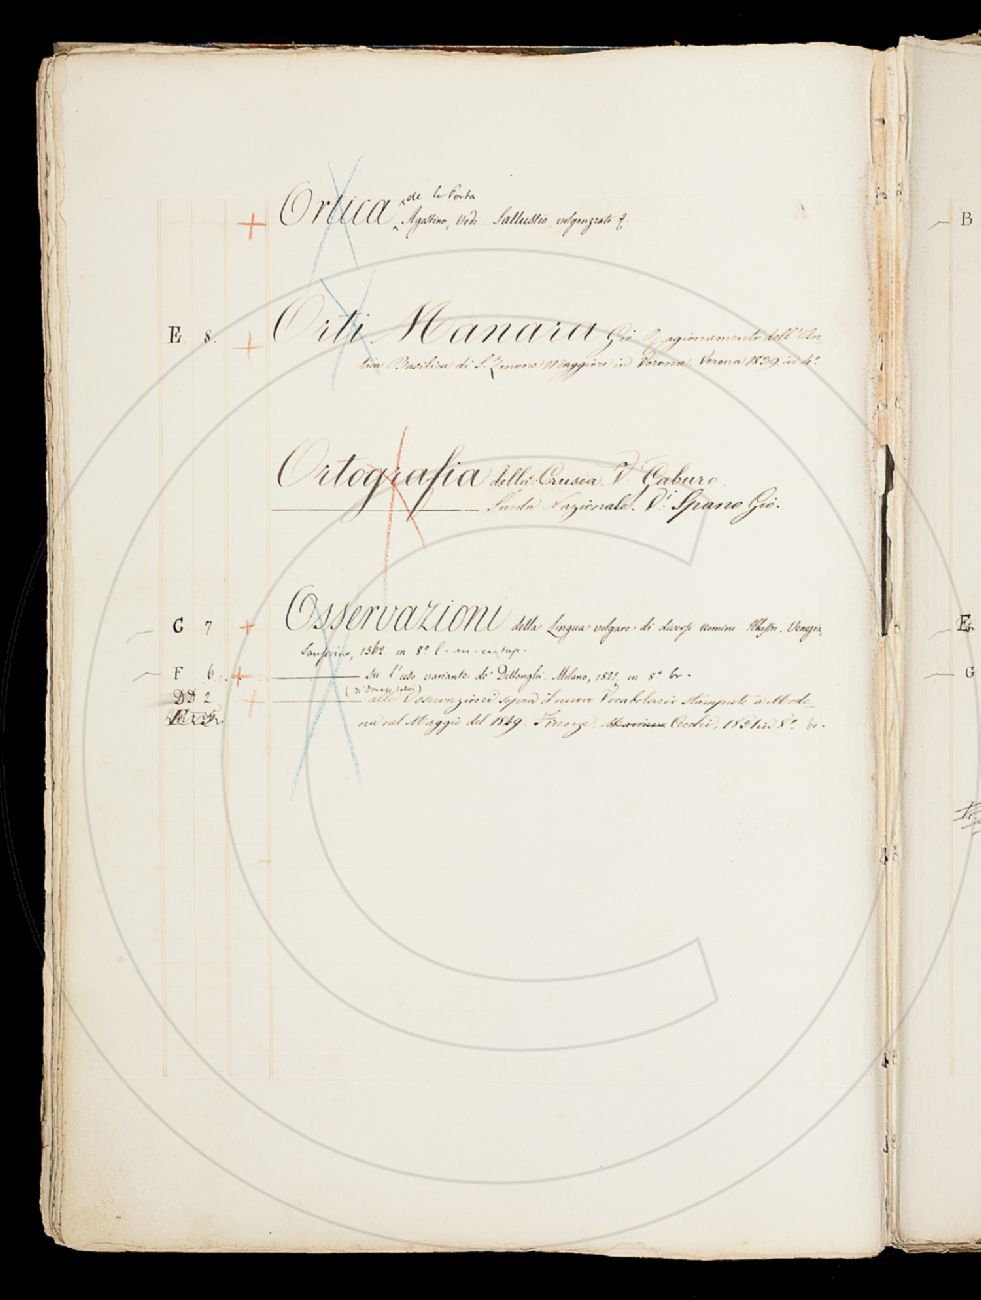 de la Porta
+ Ortica Agostino, Vedi Sallustio volgarizzato
B
E. 8. + Orti Manara Gio Ragionamento dell'An
tica Basilica di S. Zenone Maggiore in Verona. Verona 1839 in 4º
Ortografia della Crusca. Vi Gaburo.
Sarda Nazionale. Vi Spano Gio.
G 7 + Osservazioni della lingua volgare di diversi uomini Illustri. Venezia,
E.
Sansovino, 1562 in 8º
F 6. + su l'uso variante di Dellonghi. Milano, in 8º br.
G
DD 2 + alle Osservazioni sopra il nuovo Vocabolario stampate a Mode
na nel Maggio del 1849. Firenze, Cecchi, 1851 in 8º br.